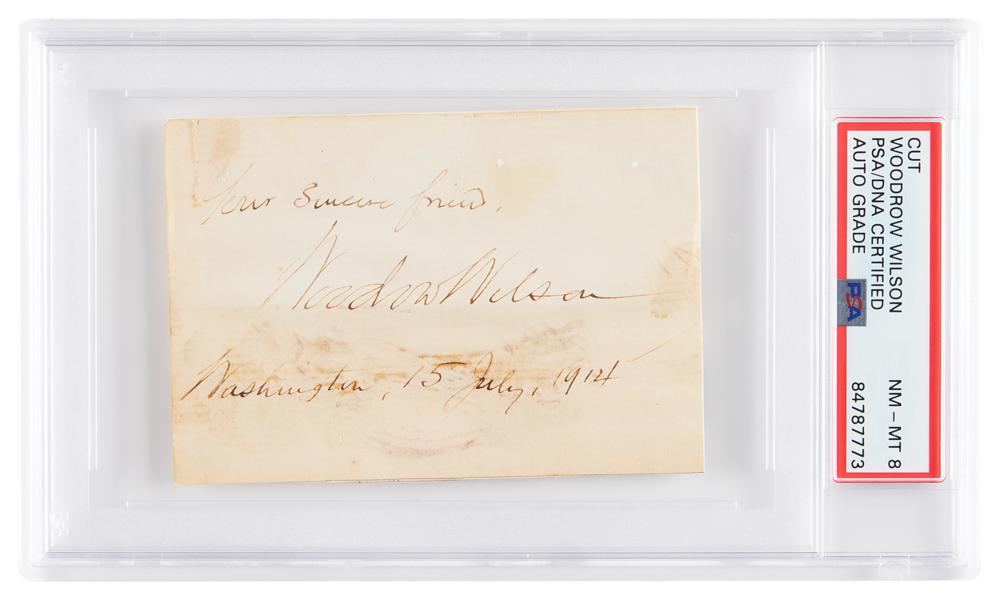 Your sincere friend,
Woodrow Wilson
Washington, 15 July, 1914
CUT
WOODROW WILSON
PSA/DNA CERTIFIED
AUTO GRADE
NM – MT 8
84787773
PSA